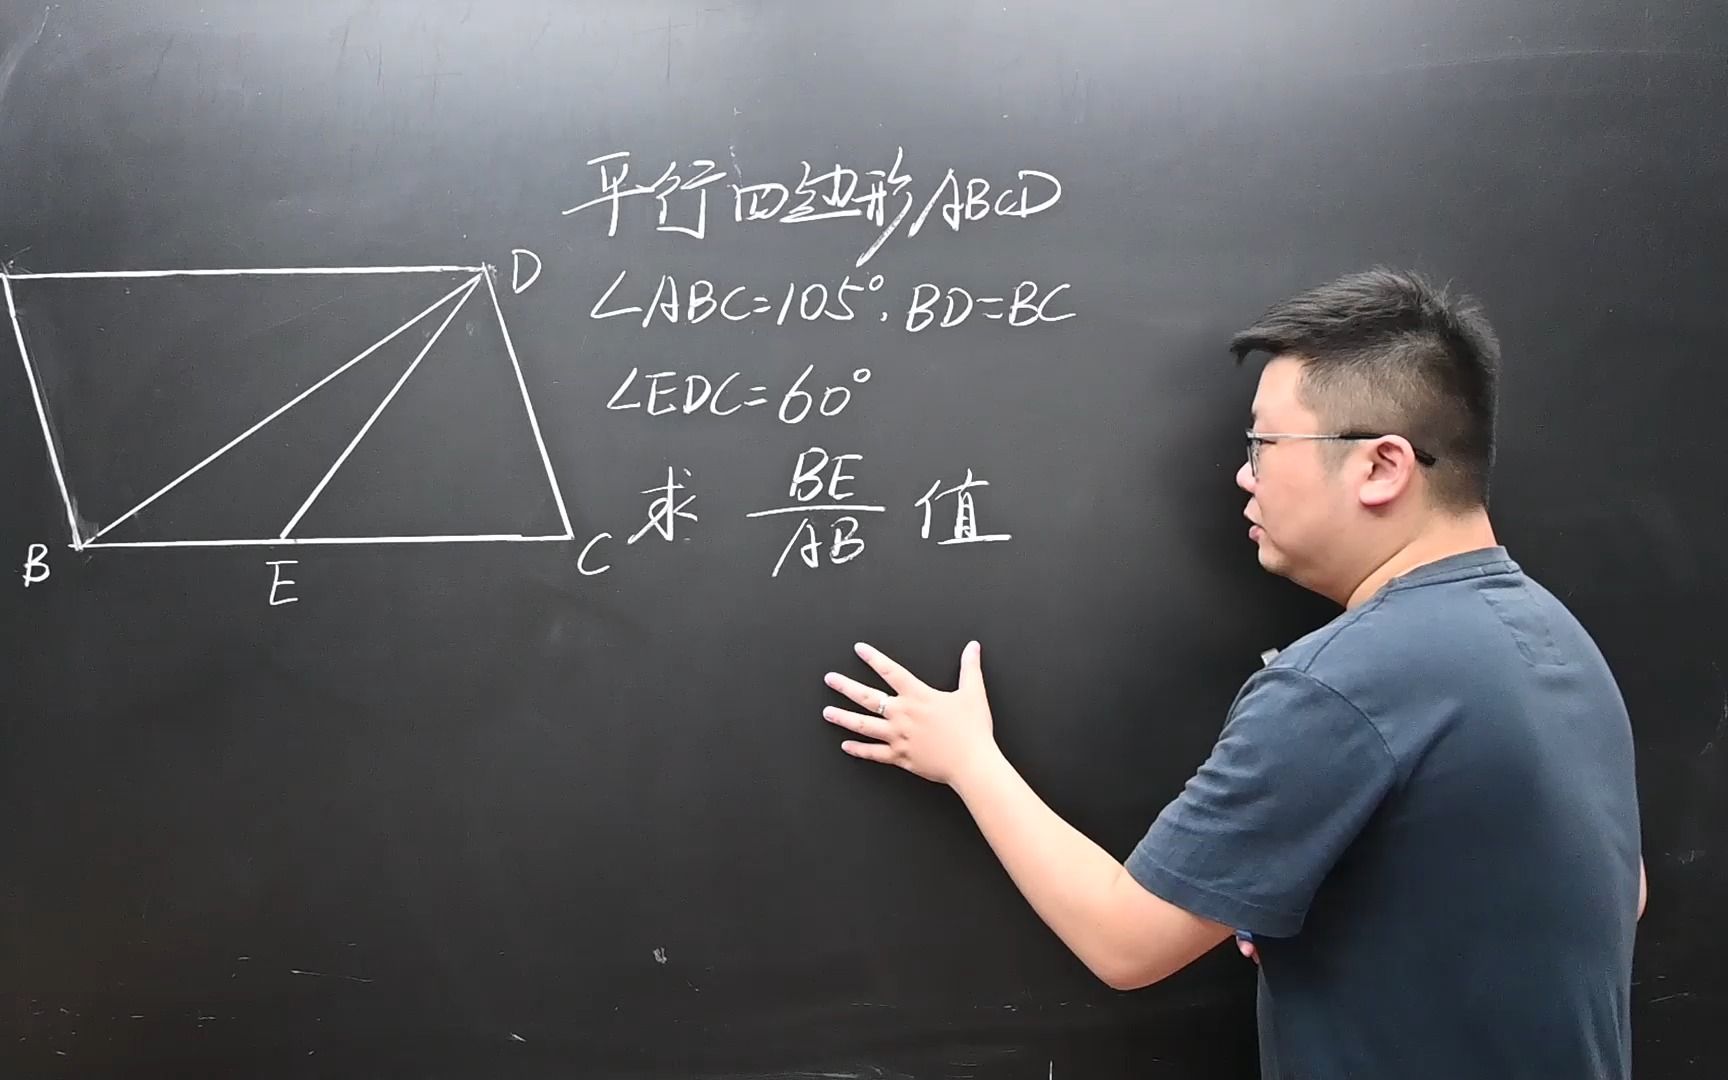 平行四边形ABCD
∠ABC=105°, BD=BC
∠EDC=60°
求 BE/AB 值
D
B
E
C